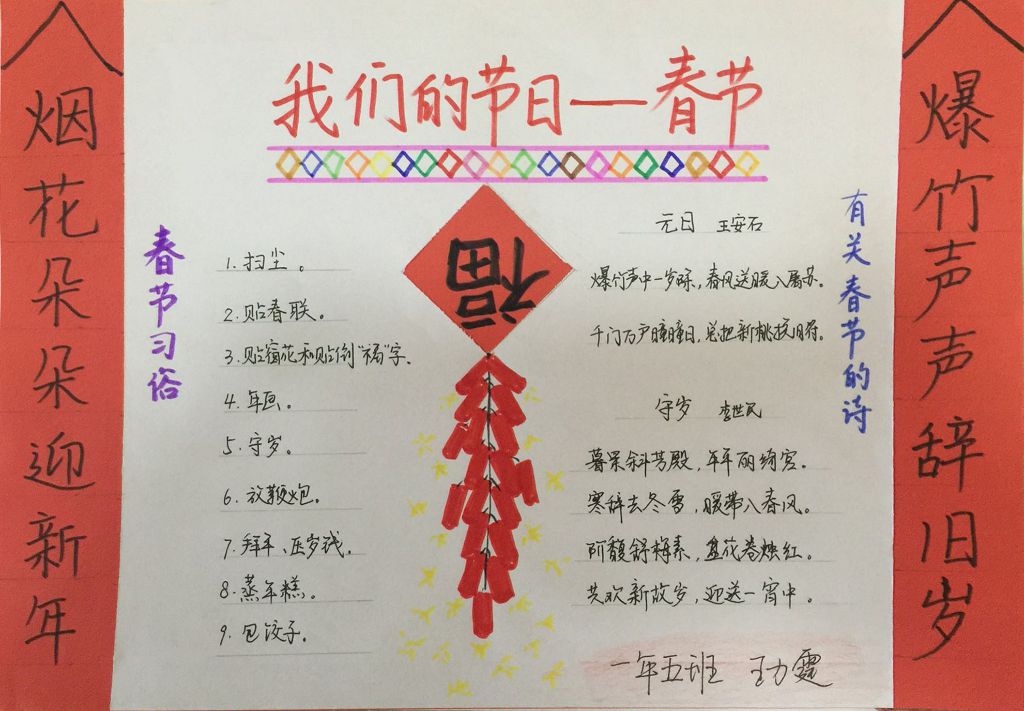 我们的节日——春节
爆竹声声辞旧岁
烟花朵朵迎新年
春节习俗
1. 扫尘。
2. 贴春联。
3. 贴窗花和贴倒“福”字。
4. 年画。
5. 守岁。
6. 放鞭炮。
7. 拜年、压岁钱。
8. 蒸年糕。
9. 包饺子。
福
有关春节的诗
元日 王安石
爆竹声中一岁除，春风送暖入屠苏。
千门万户曈曈日，总把新桃换旧符。
守岁 李世民
暮景斜芳殿，年年丽绮宫。
寒辞去冬雪，暖带入春风。
阶馥舒梅素，盘花卷烛红。
共欢新故岁，迎送一宵中。
一年五班 王力霆